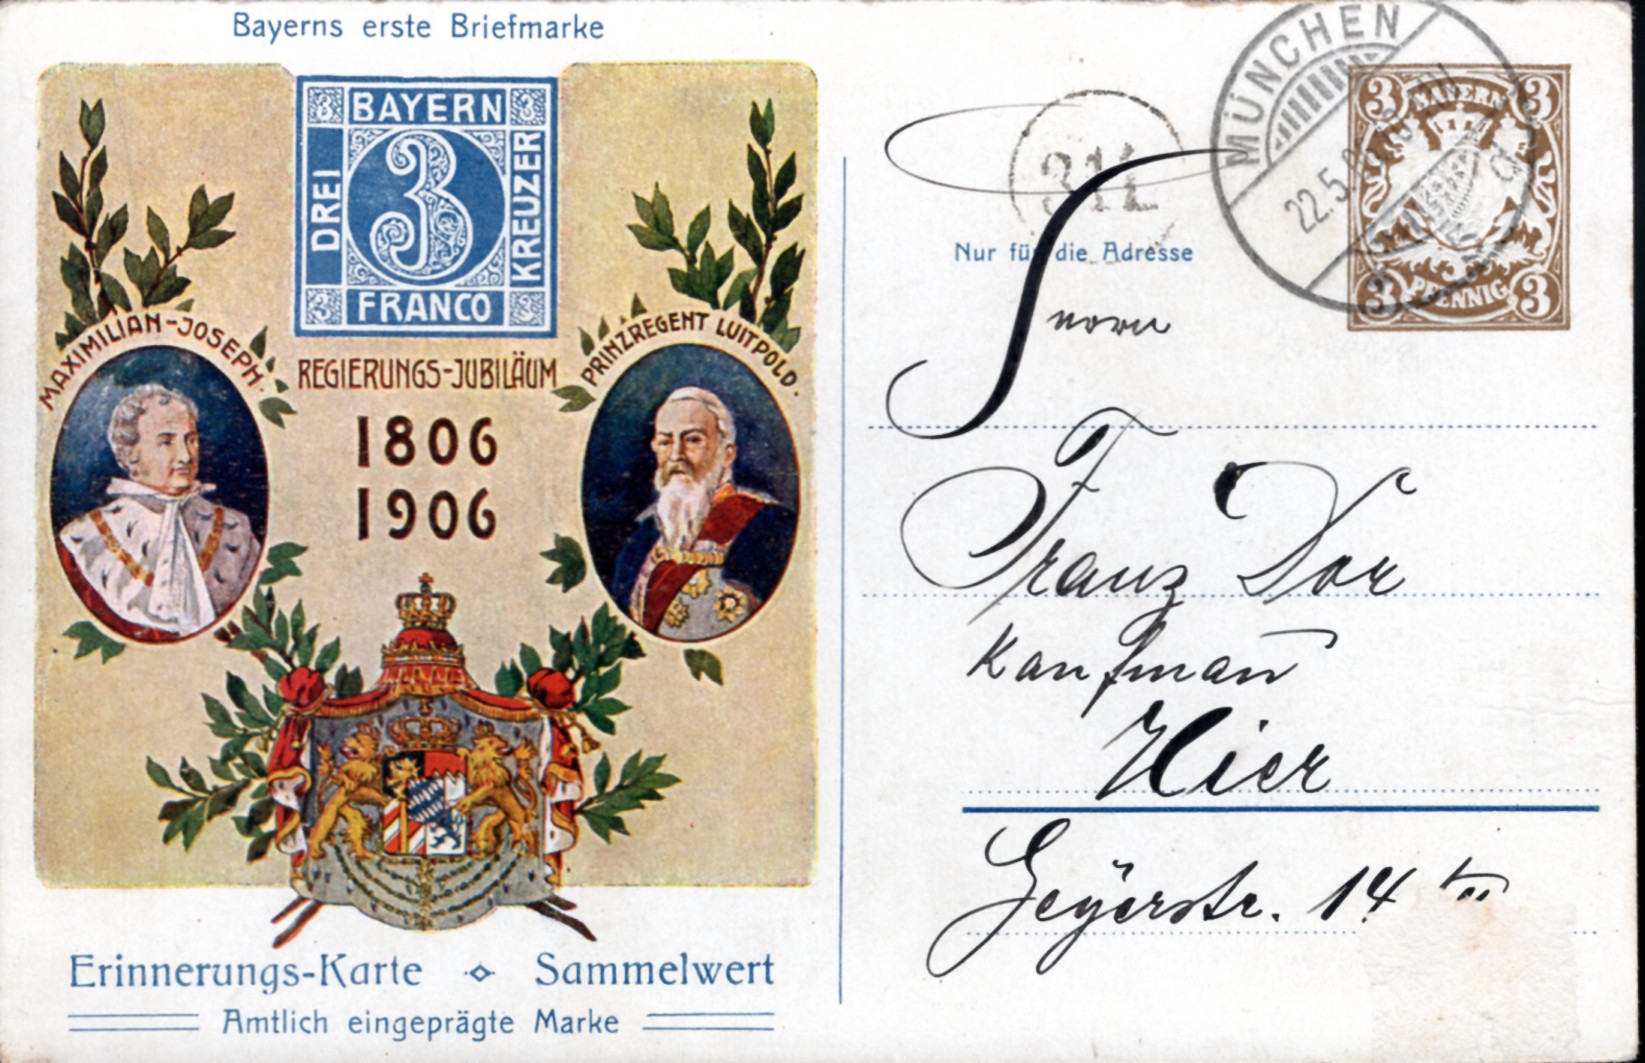 Bayerns erste Briefmarke
3 BAYERN 3
DREI 3 KREUZER
3 FRANCO 3
MAXIMILIAN-JOSEPH.
REGIERUNGS-JUBILÄUM
PRINZREGENT LUITPOLD.
1806
1906
Erinnerungs-Karte Sammelwert
Amtlich eingeprägte Marke
MÜNCHEN
22.5.
3 BAYERN 3
3 PFENNIG 3
Nur für die Adresse
Franz Dor
Kaufmann
Hier
Geyerstr. 14